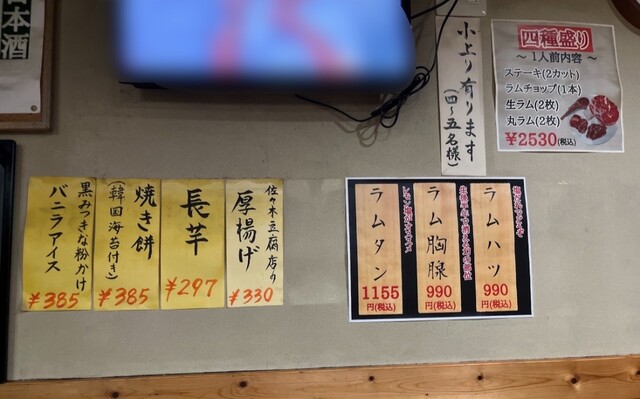 日本酒
小上り有ります
(四〜五名様)
四種盛り
〜1人前内容〜
ステーキ(2カット)
ラムチョップ(1本)
生ラム(2枚)
丸ラム(2枚)
¥2530(税込)
佐々木豆腐店の
厚揚げ
¥330
長芋
¥297
焼き餅
(韓国海苔付き)
¥385
黒みつきな粉かけ
バニラアイス
¥385
ラムハツ
990
円(税込)
ラム胸腺
990
円(税込)
ラムタン
1155
円(税込)